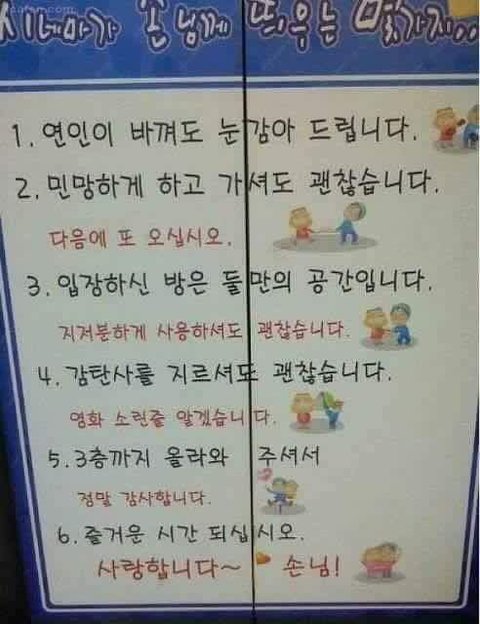 시네마가 손님께 띄우는 몇가지..
1. 연인이 바껴도 눈감아 드립니다.
2. 민망하게 하고 가셔도 괜찮습니다.
다음에 또 오십시오.
3. 입장하신 방은 둘만의 공간입니다.
지저분하게 사용하셔도 괜찮습니다.
4. 감탄사를 지르셔도 괜찮습니다.
영화 소린줄 알겠습니다.
5. 3층까지 올라와 주셔서
정말 감사합니다.
6. 즐거운 시간 되십시오.
사랑합니다~ 손님!